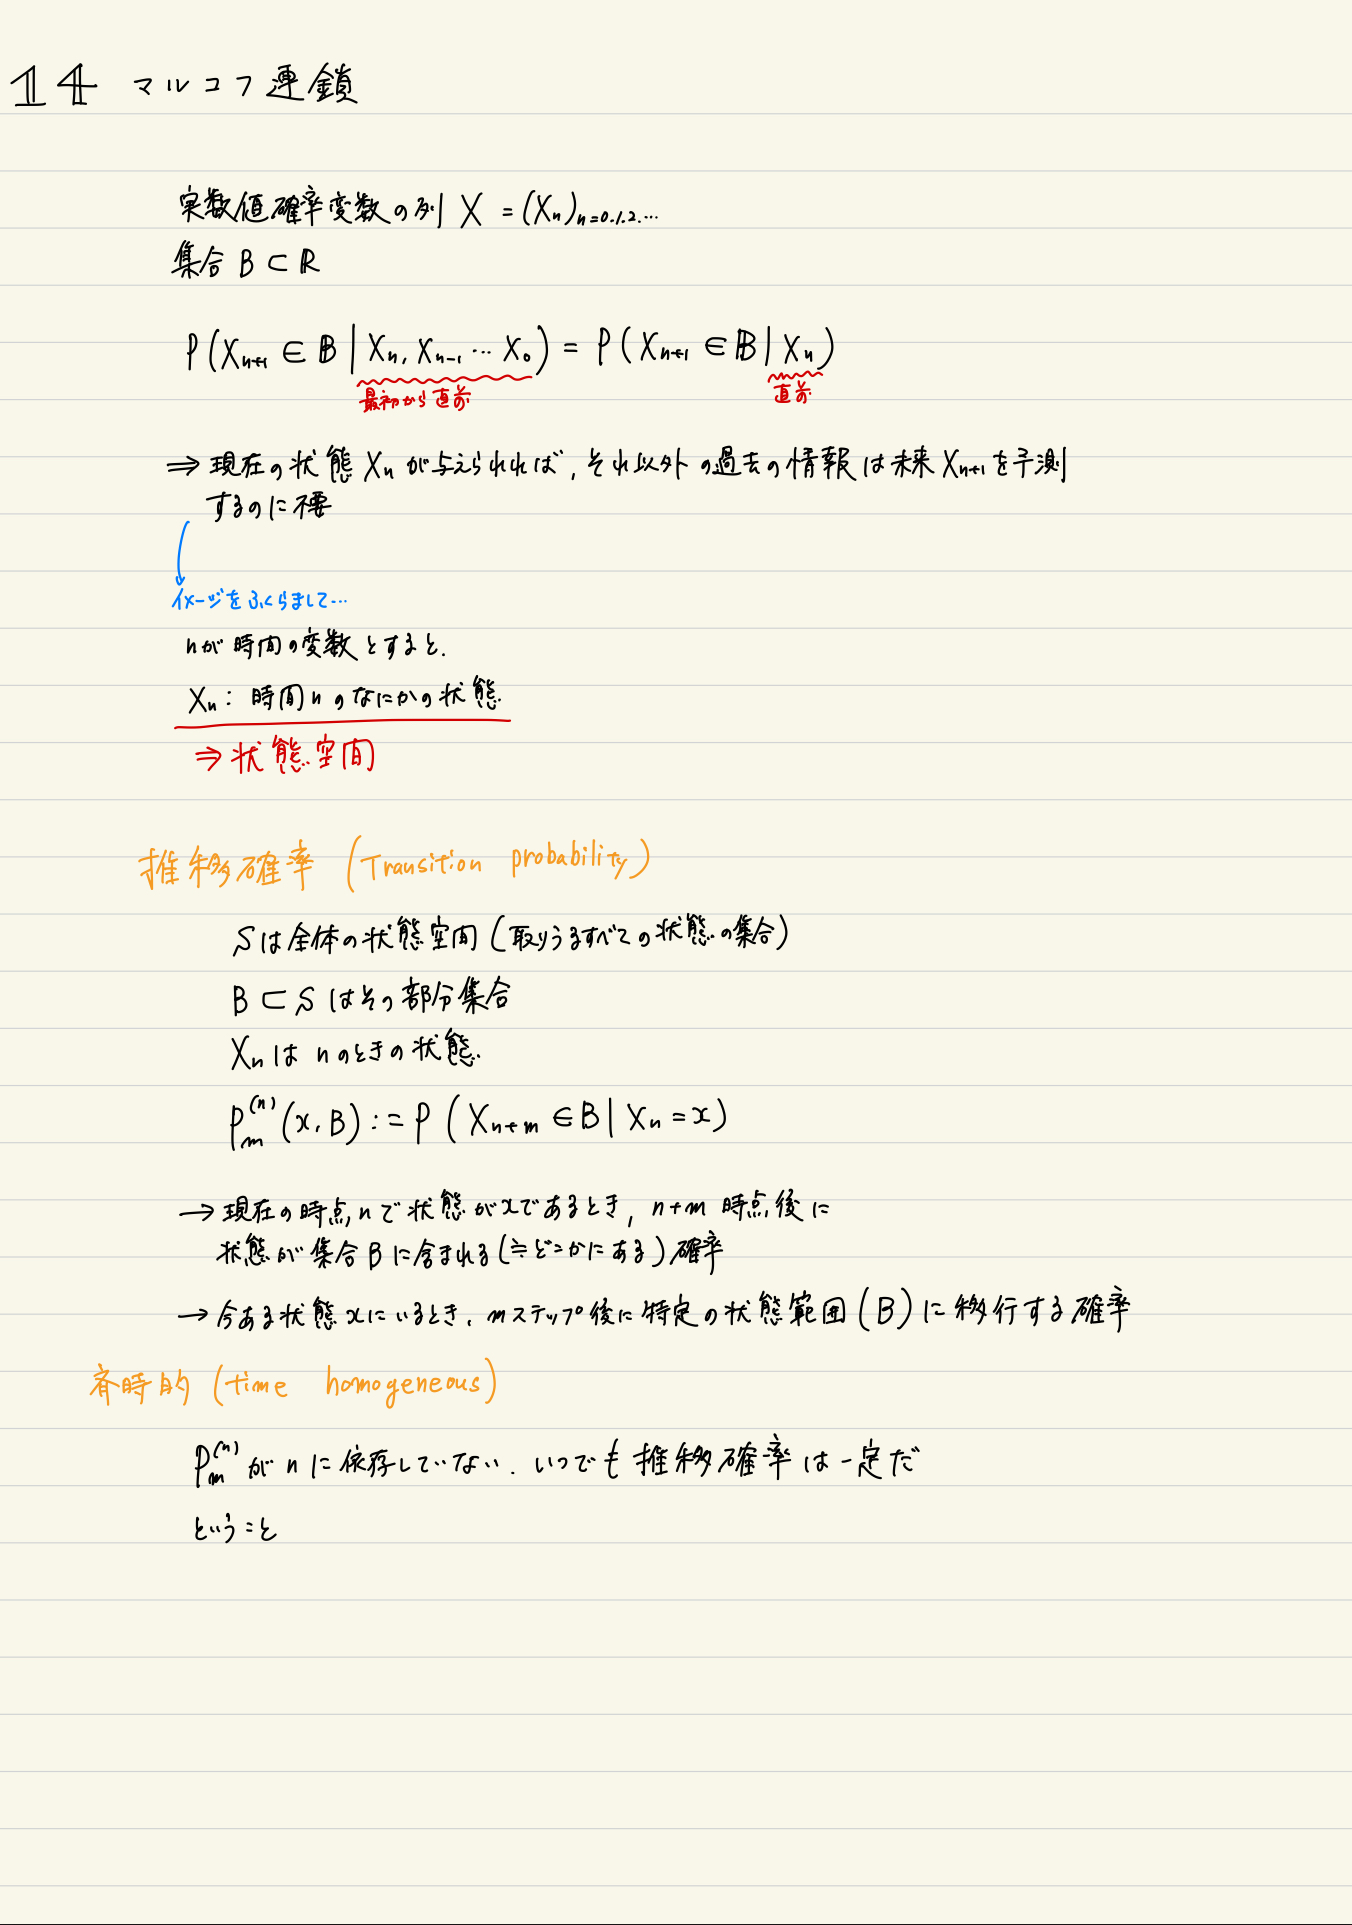 14 マルコフ連鎖
実数値確率変数の列 X = (Xn)n=0.1.2.…
集合 B ⊂ R
P(Xn+1 ∈ B | Xn, Xn-1 … X0) = P(Xn+1 ∈ B | Xn)
最初から直前 直前
⇒ 現在の状態 Xn が与えられれば, それ以外の過去の情報は未来 Xn+1 を予測
するのに不要
イメージをふくらまして…
nが時間の変数とすると.
Xn: 時間nのなにかの状態
⇒ 状態空間
推移確率 (Transition probability)
Sは全体の状態空間 (取りうるすべての状態の集合)
B ⊂ S はその部分集合
Xnは nのときの状態
Pm(n)(x, B) := P (Xn+m ∈ B | Xn = x)
→ 現在の時点nで状態がxであるとき, n+m 時点後に
状態が集合Bに含まれる(≒どこかにある)確率
→ 今ある状態xにいるとき, mステップ後に特定の状態範囲(B)に移行する確率
斉時的 (time homogeneous)
Pm(n) が n に依存していない. いつでも推移確率は一定だ
ということ